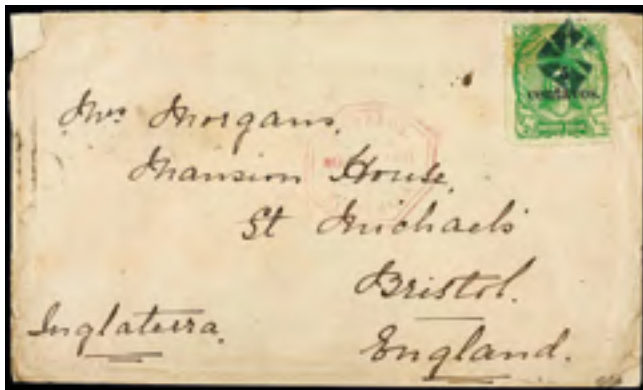 Mrs Morgans,
Mansion House,
St Michaels
Bristol.
England.
Inglaterra.